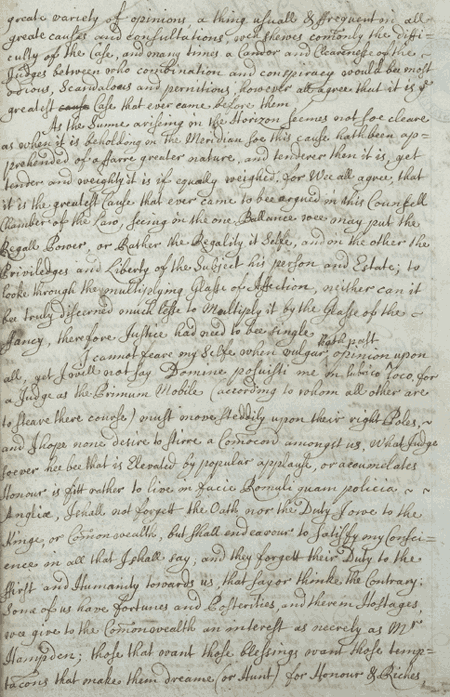 greate variety of opinions, a thing usuall & ffrequent in all
greate causes and consultations, wch shewes comonly the diffi-
culty of the Case, and many times a Candor and Clearenes of the
Judges between who combination and conspiracy would be most
odious, Scandalous and pernitious, however all agree that it is ye
greatest cause Case that ever came before them
As the Sunne arising in the Horizon seemes not soe cleare
as when it is beholding in the Meridian soe this cause hath been ap=
prehended of a ffarre greater nature, and tenderer then it is, yet
tender and weighty it is if equally weighed, for Wee all agree, that
it is the greatest Cause that ever came to bee argued in this Councell
Chamber of the Law, seeing in the one Ballance wee may put the
Regall Power, or Rather the Regality it Selfe, and on the other the
Priviledges and Liberty of the Subject his person and Estate; to
looke through the multiplying Glasse of Affection, neither can it
bee truly discerned much lesse to Multiply it by the Glasse of the
ffancy, therefore Justice had need to bee single
I cannot feare my Selfe when vulgar opinion hath past upon
all, yet I will not say Domine posuisti me in lubrico loco, for
a Judge as the Primum Mobile (according to whom all other are
to steare there course) must move steddily upon their right Poles,
and I hope none desire to stirre a Comocon amongst us, What Judge
soever hee bee that is Elevated by popular applause, or accumulates
Honour is fitt rather to live in facie Romuli quam policia
Angliæ, I shall not forgett the Oath nor the Duty I owe to the
Kinge, or Comonwealth, but shall endeavour to satisfy my Consci-
ence in all that I shall say, and they forgett their Duty to the
ffirst and Humanity towards us, that say or thinke the Contrary;
Some of us have fortunes and Posterities, and therein Hostages,
wee give to the Comonwealth an interest as neerely as Mr
Hampden; those that want those blessings want those temp=
tacons that make them dreame (or Hunt) for Honour & Riches